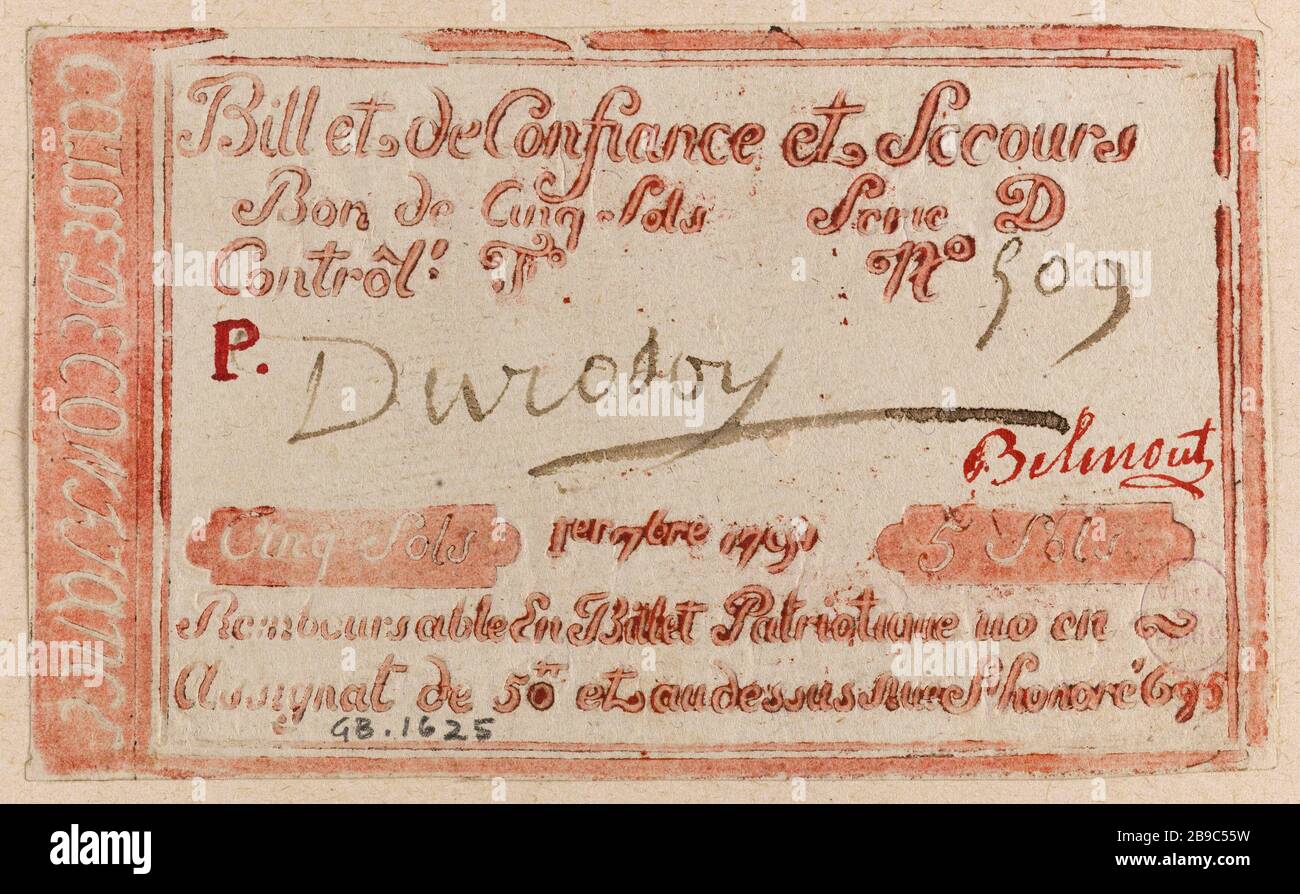 Billet de Confiance et Secours
Bon de Cinq Sols Serie D
Contrôl: F. No 509
P. Durosoy
Belmont
Cinq Sols 1er 7bre 1791 5 Sols
Remboursable En Billet Patriotique uo en ~
Assignat de 50tt et au dessus Rue St honoré 695
GB.1625
alamy
Image ID: 2B9C55W
www.alamy.com